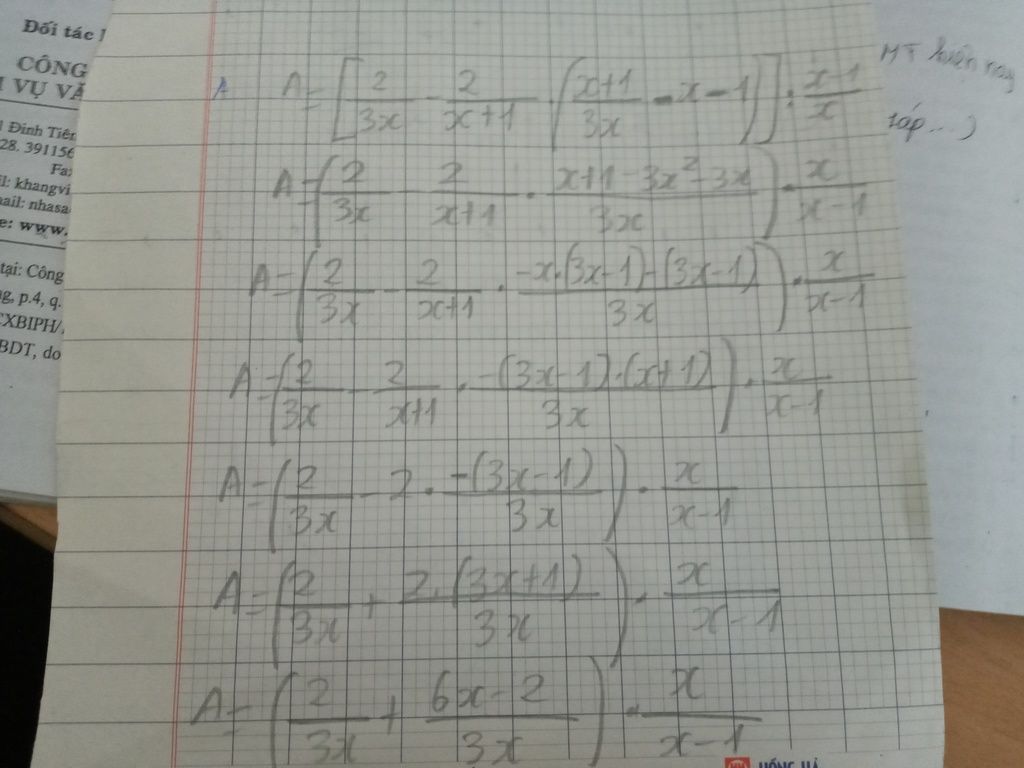 Đối tác
CÔNG
VỤ VĂ
Đinh Tiên
28. 391156
Fa
il: khangvi
mail: nhasa
e: www.
tại: Công
ng, p.4, q.
CXBIPH/
BDT, do
A = [2/3x - 2/x+1 · (x+1/3x - x - 1)] : x-1/x
A = (2/3x - 2/x+1 · x+1-3x²-3x/3x) · x/x-1
A = (2/3x - 2/x+1 · -x·(3x-1)-(3x-1)/3x) · x/x-1
A = (2/3x - 2/x+1 · -(3x-1)·(x+1)/3x) · x/x-1
A = (2/3x - 2 · -(3x-1)/3x) · x/x-1
A = (2/3x + 2·(3x+1)/3x) · x/x-1
A = (2/3x + 6x-2/3x) · x/x-1
HỒNG HÀ
MT hiện nay
táp...)